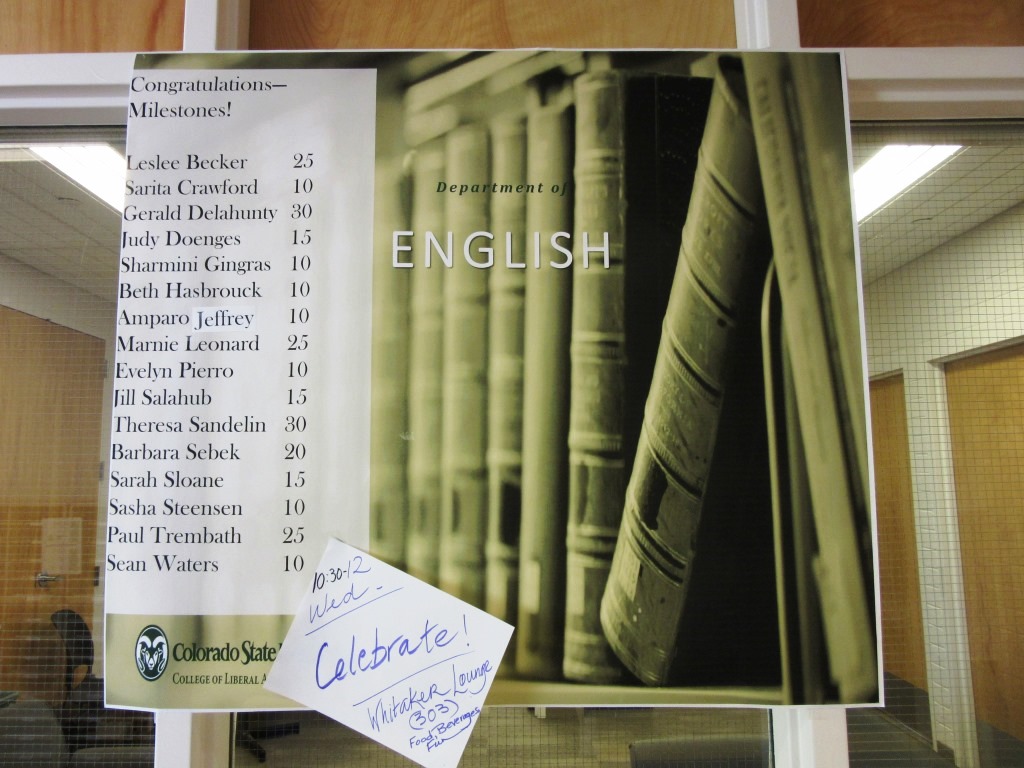 Congratulations—
Milestones!
Leslee Becker 25
Sarita Crawford 10
Gerald Delahunty 30
Judy Doenges 15
Sharmini Gingras 10
Beth Hasbrouck 10
Amparo Jeffrey 10
Marnie Leonard 25
Evelyn Pierro 10
Jill Salahub 15
Theresa Sandelin 30
Barbara Sebek 20
Sarah Sloane 15
Sasha Steensen 10
Paul Trembath 25
Sean Waters 10
Colorado State
College of Liberal
Department of
ENGLISH
10:30-12
Wed -
Celebrate!
Whitaker Lounge
(303)
Food, Beverages
Fun